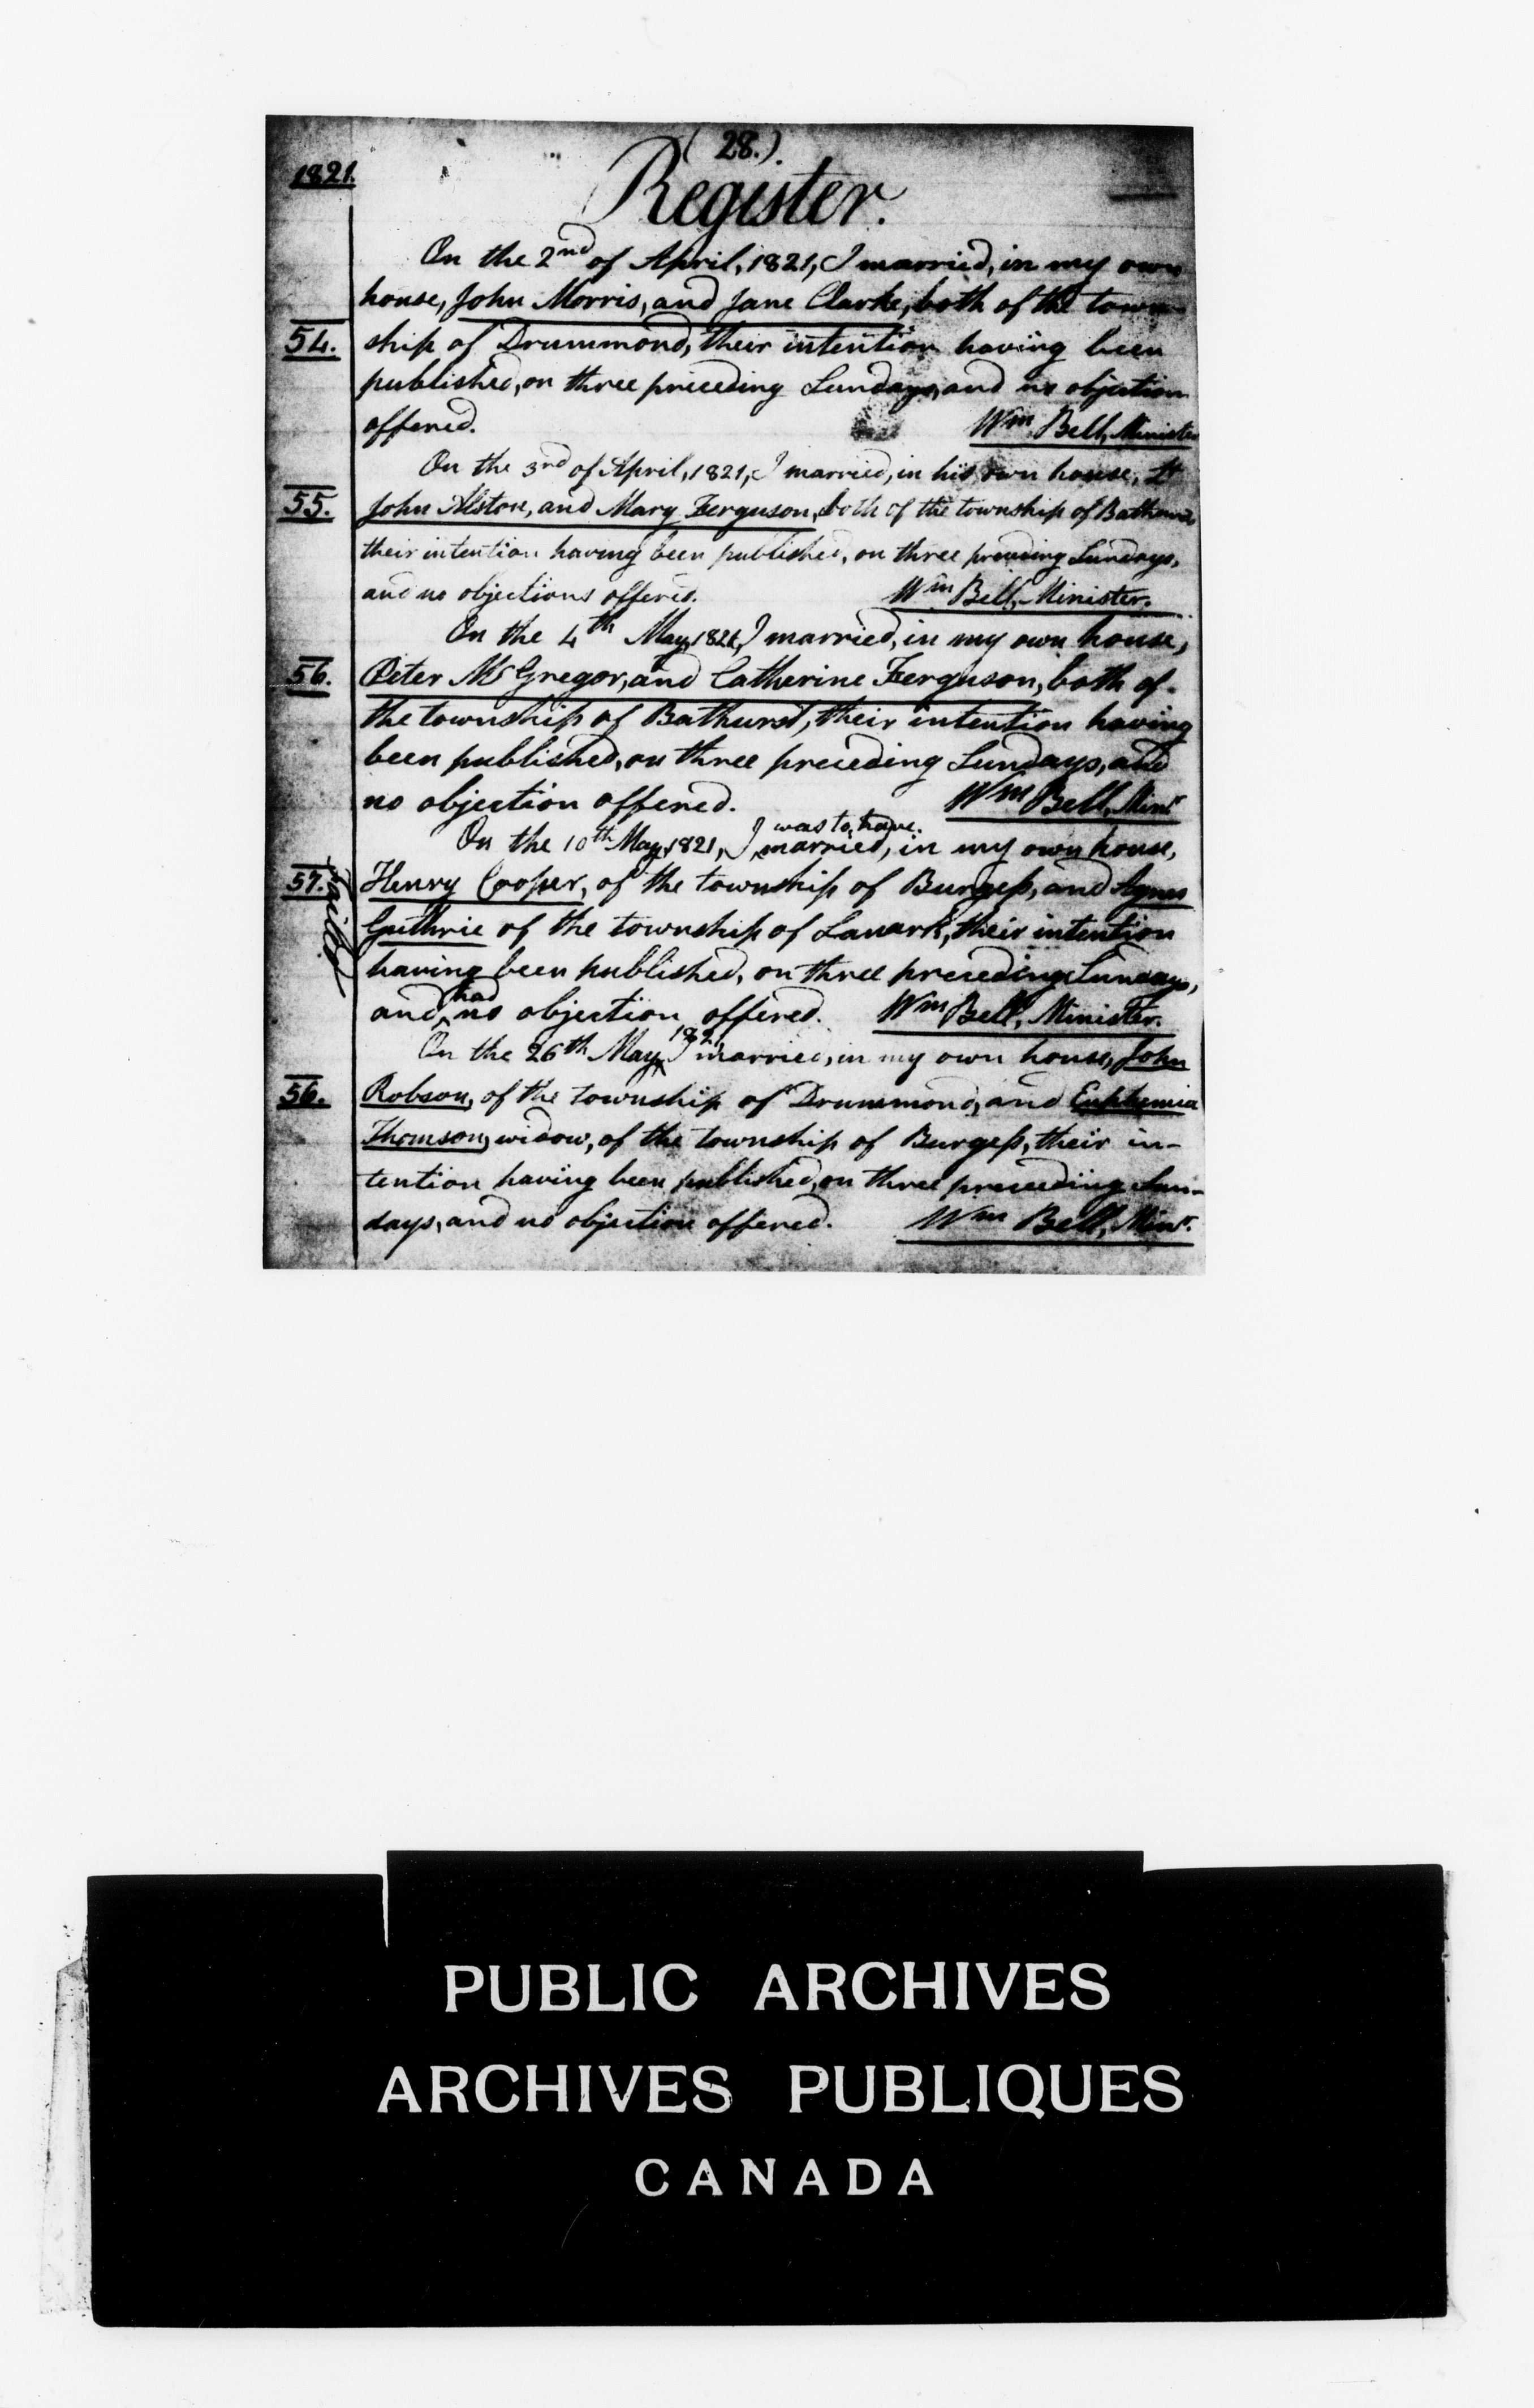 (28.)
1821.
Register.
On the 2nd of April, 1821, I married, in my own
house, John Morris, and Jane Clarke, both of the town-
54. ship of Drummond, their intention having been
published, on three preceding Sundays, and no objection
offered. Wm Bell, Minister
On the 3rd of April, 1821, I married, in his own house, Lt
55. John Alston, and Mary Ferguson, both of the township of Bathurst,
their intention having been published, on three preceding Sundays,
and no objections offered. Wm Bell, Minister.
On the 4th May, 1821, I married, in my own house,
56. Peter McGregor, and Catherine Ferguson, both of
the township of Bathurst, their intention having
been published, on three preceding Sundays, and
no objection offered. Wm Bell, Minr
was to have.
On the 10th May, 1821, I married, in my own house,
57. Henry Cooper, of the township of Burgess, and Agnes
failed
Guthrie of the township of Lanark, their intention
having been published, on three preceding Sundays,
had
and no objection offered. Wm Bell, Minister.
On the 26th May, 1821 I married, in my own house, John
56. Robson, of the township of Drummond, and Euphemia
Thomson, widow, of the township of Burgess, their in-
tention having been published, on three preceeding Sun-
days, and no objection offered. Wm Bell, Minr.
PUBLIC ARCHIVES
ARCHIVES PUBLIQUES
CANADA